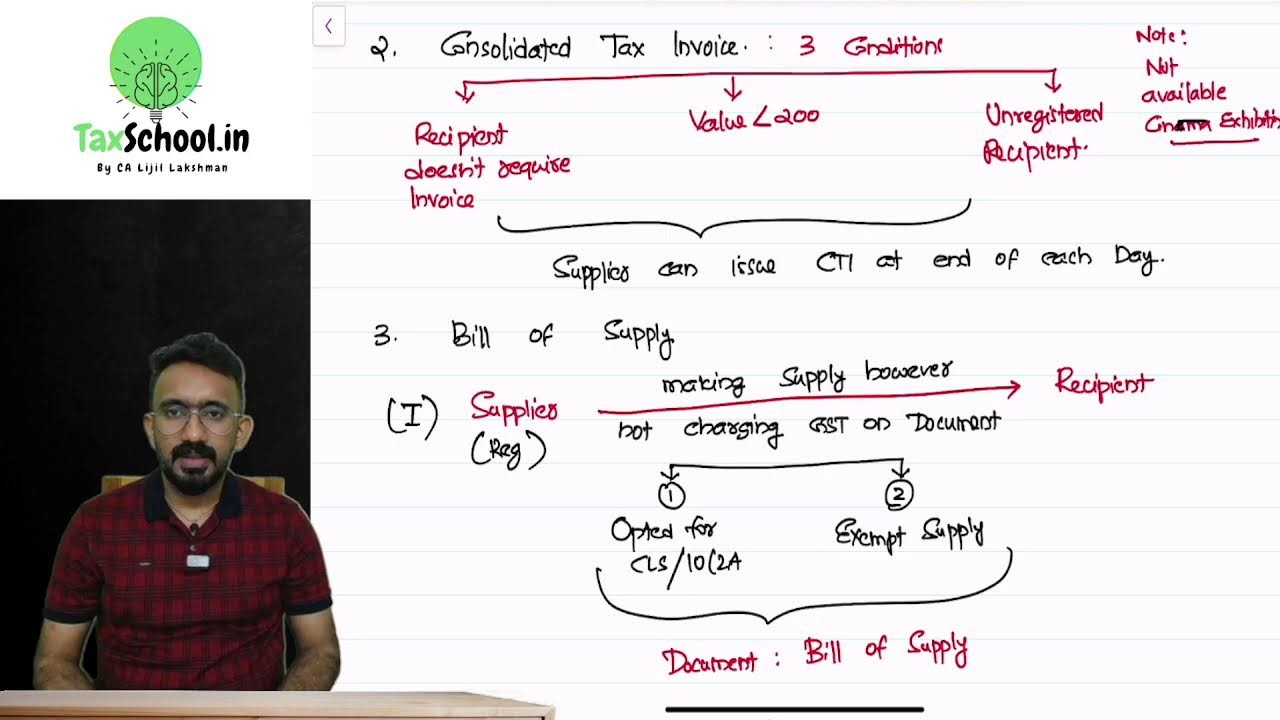 TaxSchool.in
By CA Lijil Lakshman
2. Consolidated Tax Invoice. : 3 Conditions
Recipient
doesn't require
Invoice
Value < 200
Unregistered
Recipient.
Note:
Not
available
Exhibitin
Supplier can issue CTI at end of each Day.
3. Bill of Supply
(I) Supplier
(Reg)
making Supply however
not charging GST on Document
Recipient
1
Opted for
CLS/10(2A
2
Exempt Supply
Document : Bill of Supply